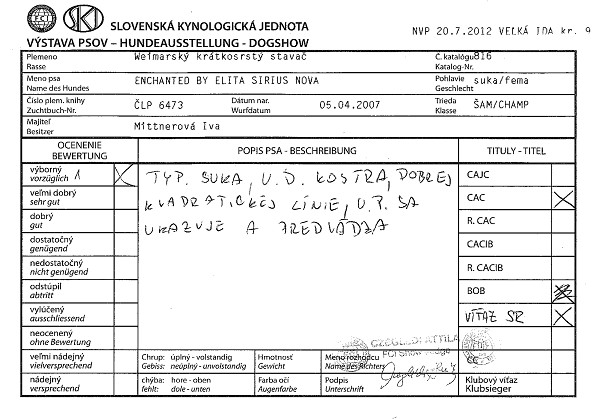 FCI SKJ SLOVENSKÁ KYNOLOGICKÁ JEDNOTA
NVP 20.7.2012 VEĽKÁ IDA kr. 9
VÝSTAVA PSOV – HUNDEAUSSTELLUNG - DOGSHOW
Plemeno Weimarský krátkosrstý stavač Č. katalógu 816
Rasse Katalog-Nr.
Meno psa ENCHANTED BY ELITA SIRIUS NOVA Pohlavie suka/fema
Name des Hundes Geschlecht
Číslo plem. knihy ČLP 6473 Dátum nar. 05.04.2007 Trieda ŠAM/CHAMP
Zuchtbuch-Nr. Wurfdatum Klasse
Majiteľ Mittnerová Iva
Besitzer
OCENENIE POPIS PSA - BESCHREIBUNG TITULY - TITEL
BEWERTUNG
výborný 1 X TYP. SUKA, V.D. KOSTRA, DOBREJ CAJC
vorzüglich
veľmi dobrý KVADRATICKEJ LÍNIE, V.P. SA CAC X
sehr gut
dobrý UKAZUJE A PREDVÁDZA R. CAC
gut
dostatočný CACIB
genügend
nedostatočný R. CACIB
nicht genügend
odstúpil BOB
abtritt
vylúčený VÍŤAZ SR X
ausschliessend
neocenený CZEGLÉDI ATTILA
ohne Bewertung
veľmi nádejný Chrup: úplný - volstandig Hmotnosť Meno rozhodcu
vielversprechend Gebiss: neúplný - unvolstandig Gewicht Name des Richters
nádejný chýba: hore - oben Farba očí Podpis Klubový víťaz
versprechend fehlt: dole - unten Augenfarbe Unterschrift Klubsieger